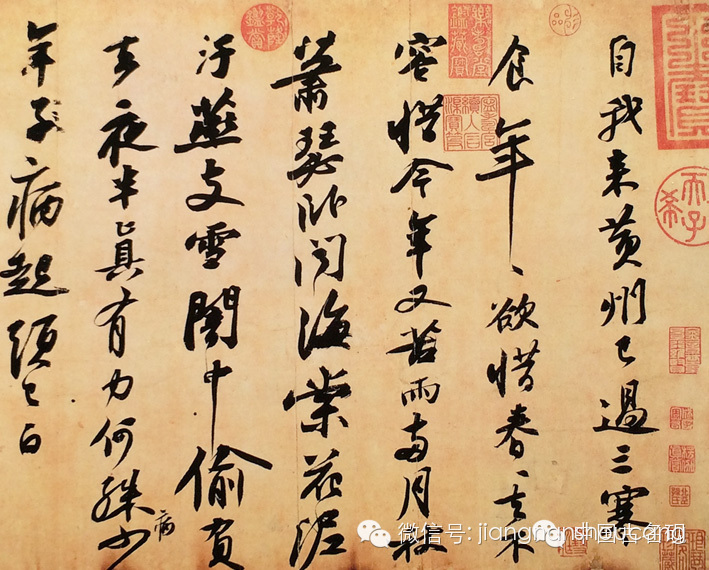 自我来黄州已過三寒
食年〻欲惜春〻去不
容惜今年又苦雨兩月秋
蕭瑟卧聞海棠花泥
汙燕支雪闇中偷負
去夜半真有力何殊少
病
年子病起頭已白
微信号: jiangnanshoucang